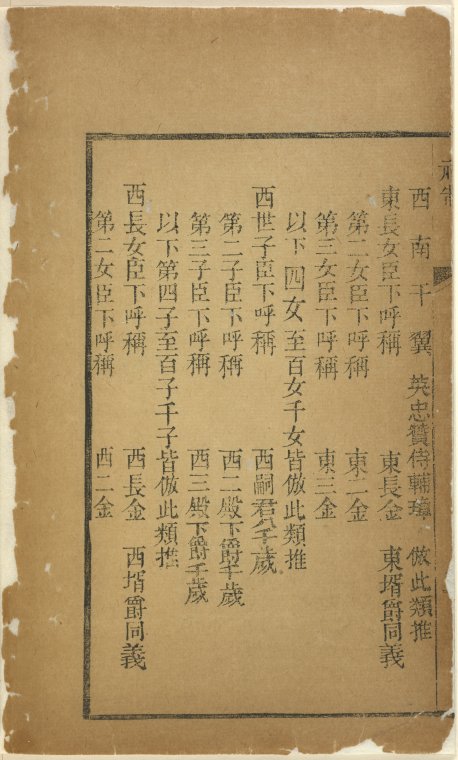 西南千翼　英忠贊侍輔　倣此類推
東長女臣下呼稱　東長金　東壻爵同義
第二女臣下呼稱　東二金
第三女臣下呼稱　東三金
以下四女至百女千女皆倣此類推
西世子臣下呼稱　西嗣君八千歲
第二子臣下呼稱　西二殿下爵千歲
第三子臣下呼稱　西三殿下爵千歲
以下第四子至百子千子皆倣此類推
西長女臣下呼稱　西長金　西壻爵同義
第二女臣下呼稱　西二金